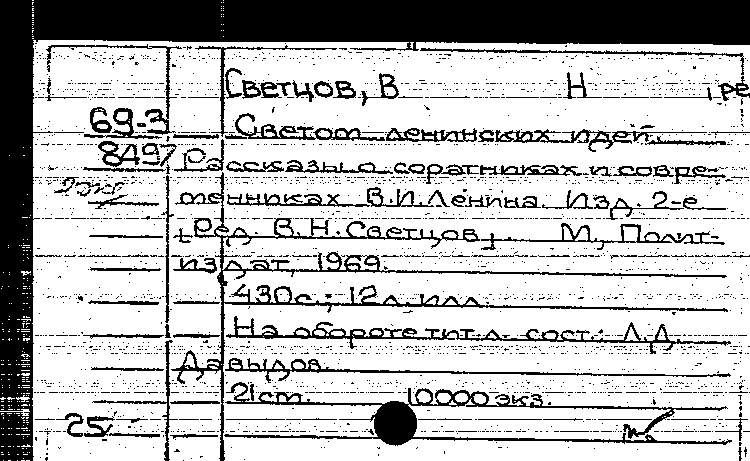 Светцов, В Н ре
69-3 Светом ленинских идей.
8497 Рассказы о соратниках и совре-
менниках В.И.Ленина. Изд. 2-е
[Ред. В.Н.Светцов]. М., Полит-
издат, 1969.
430с.; 12 л. илл.
На обороте тит.л. сост.: Л.Д.
Давыдов.
21 см. 10000 экз.
25